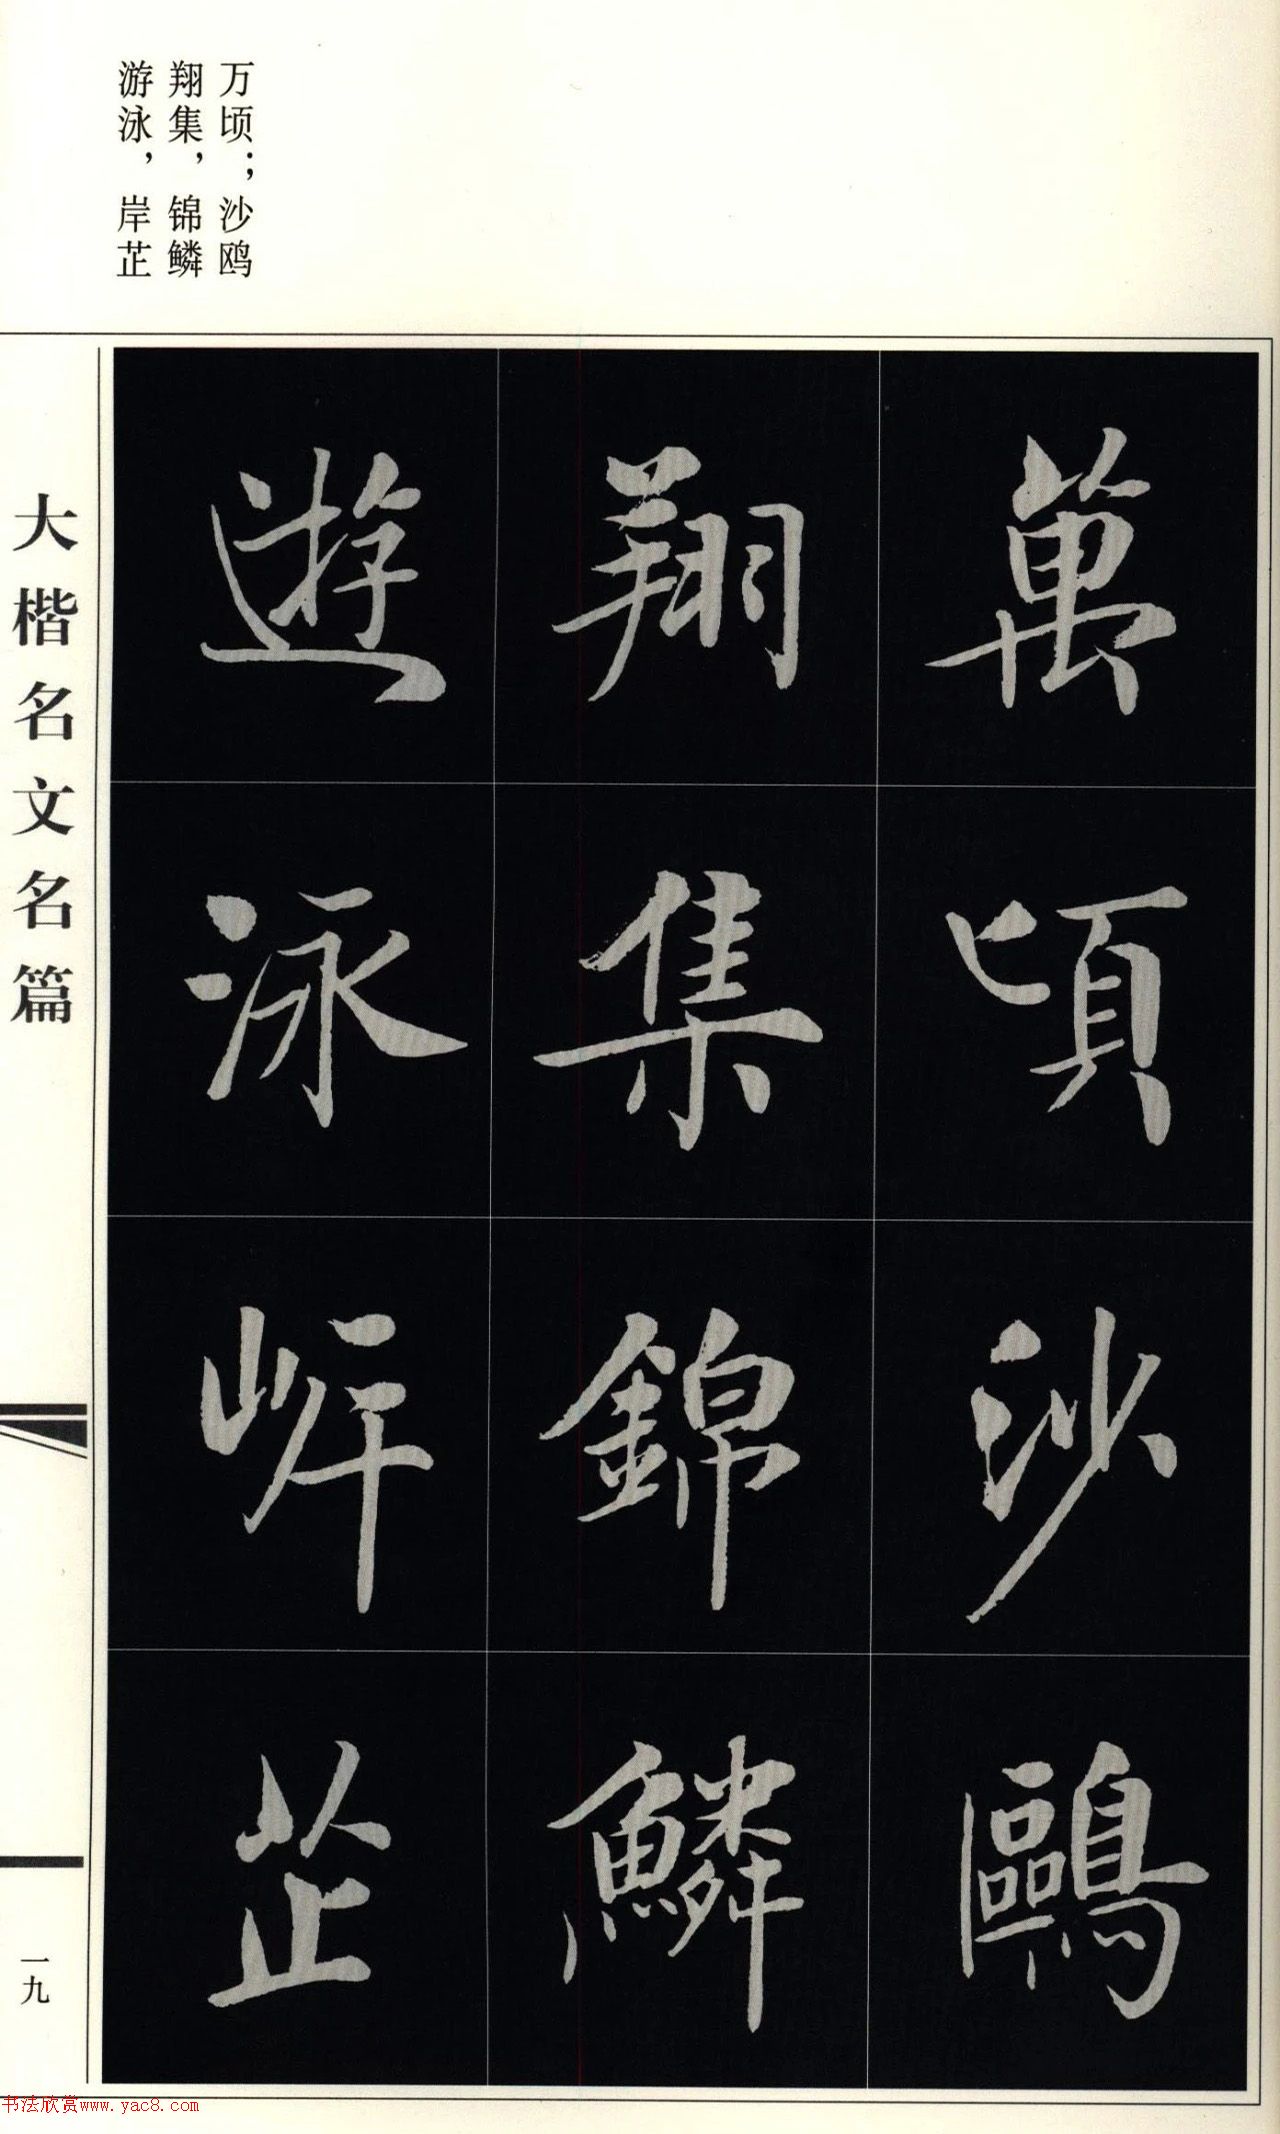 万顷；沙鸥
翔集，锦鳞
游泳，岸芷
萬頃沙鷗
翔集錦鱗
遊泳岸芷
大楷名文名篇
一九
书法欣赏www.yac8.com